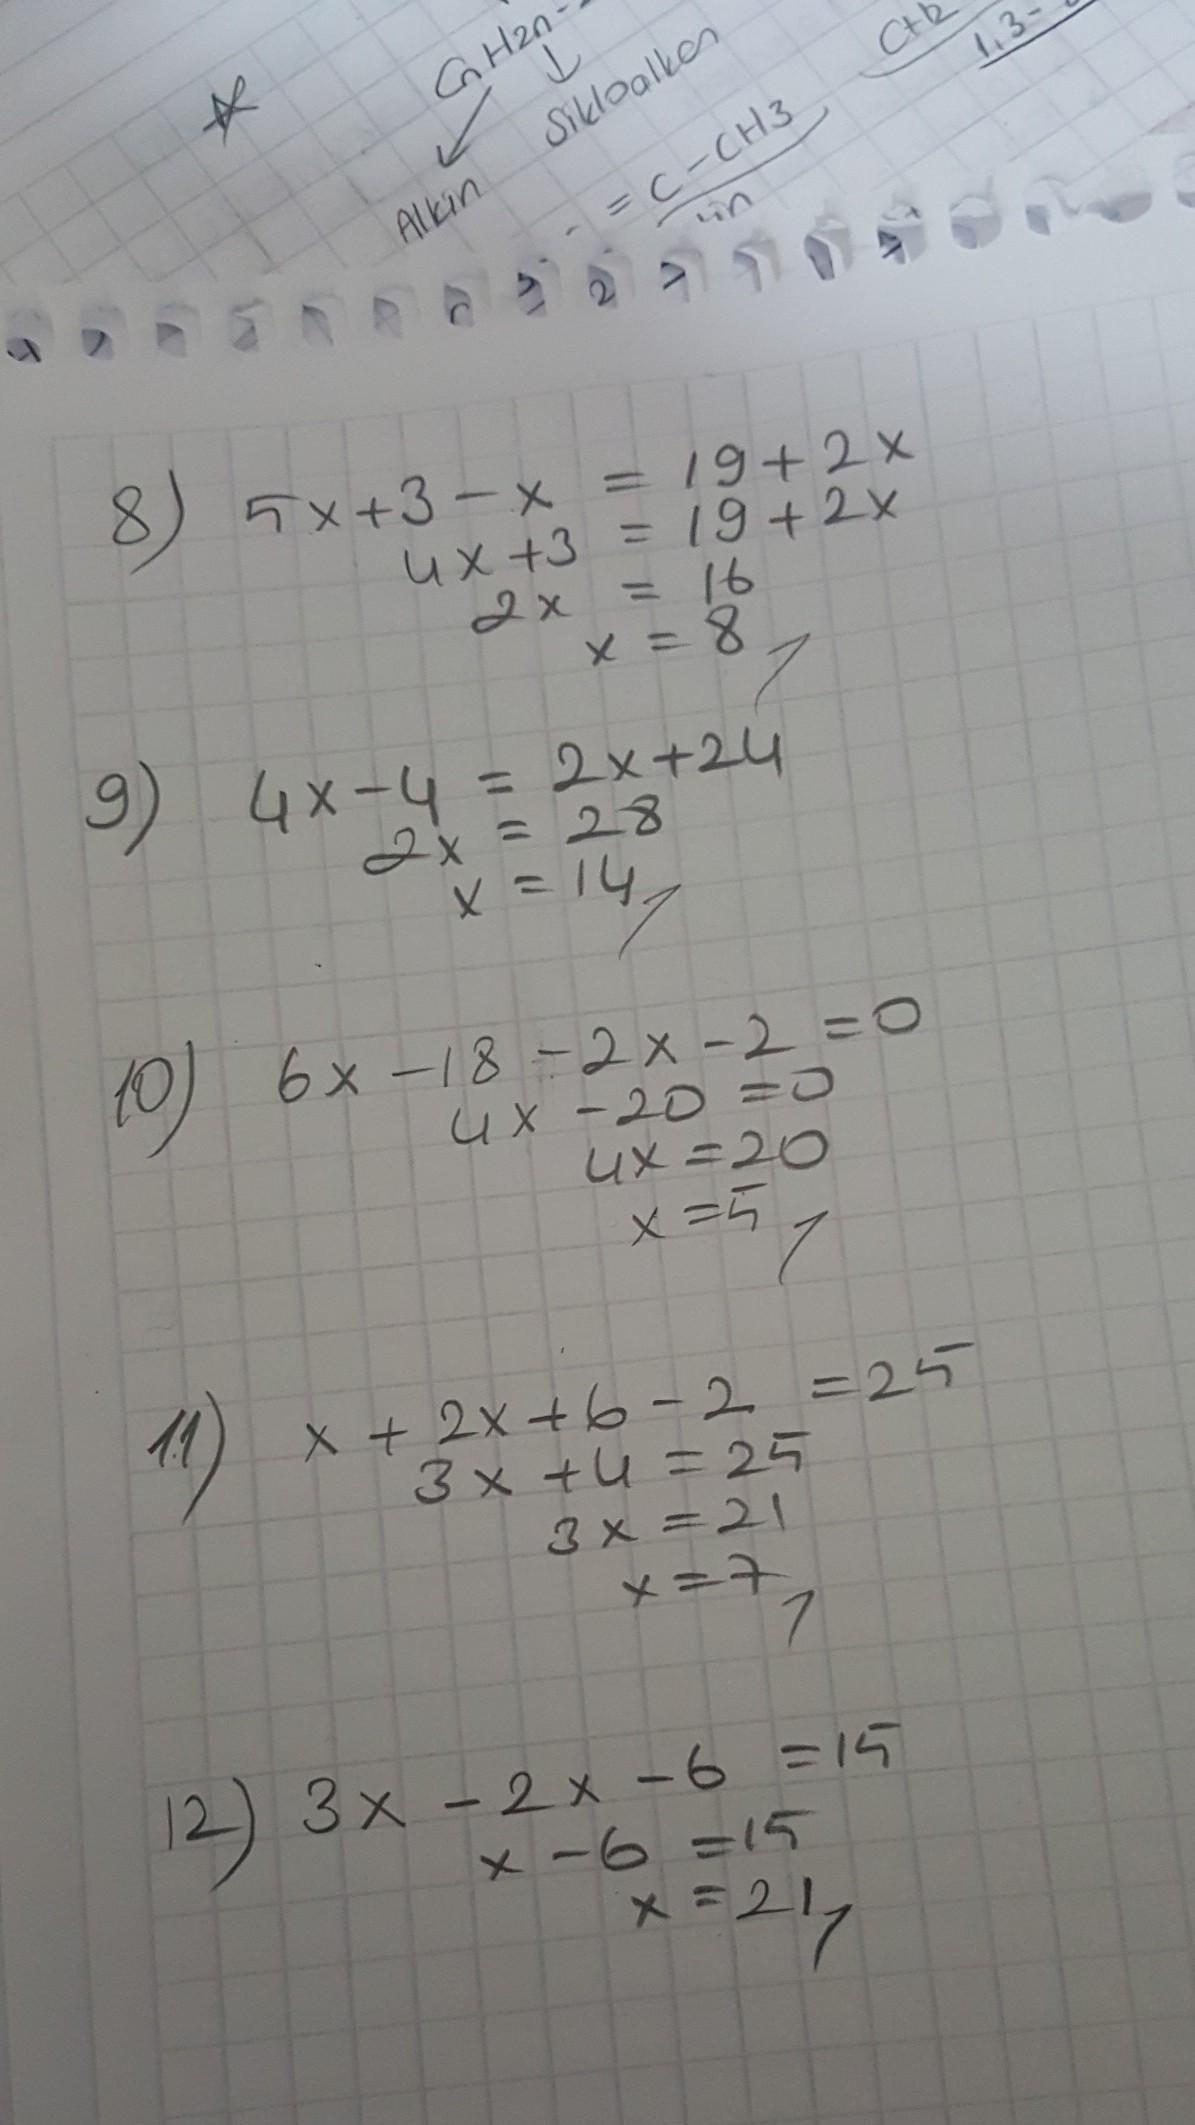 CnH2n-
Sikloalken
Alkin
= C - CH3
CH2
1,3-
8) 5x + 3 - x = 19 + 2x
4x + 3 = 19 + 2x
2x = 16
x = 8
9) 4x - 4 = 2x + 24
2x = 28
x = 14
10) 6x - 18 - 2x - 2 = 0
4x - 20 = 0
4x = 20
x = 5
11) x + 2x + 6 - 2 = 25
3x + 4 = 25
3x = 21
x = 7
12) 3x - 2x - 6 = 15
x - 6 = 15
x = 21